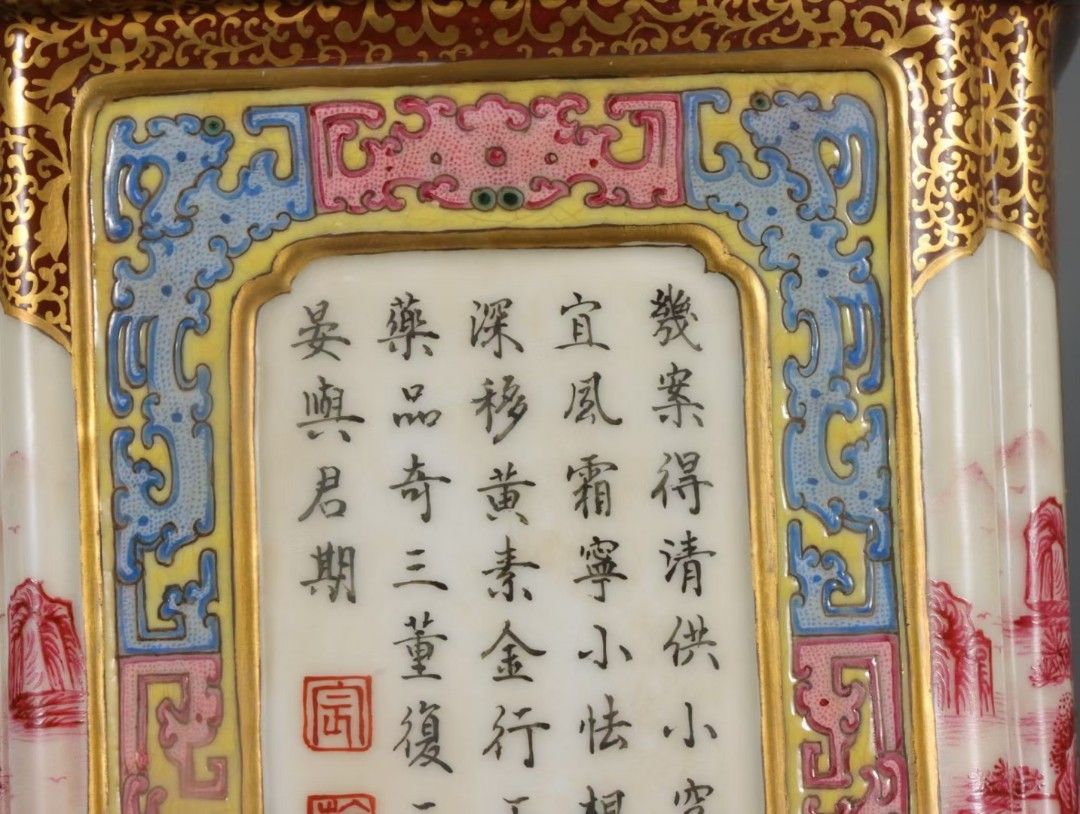 幾案得清供小
宜風霜寧小怯
深移黄素金行
藥品奇三董復
晏與君期